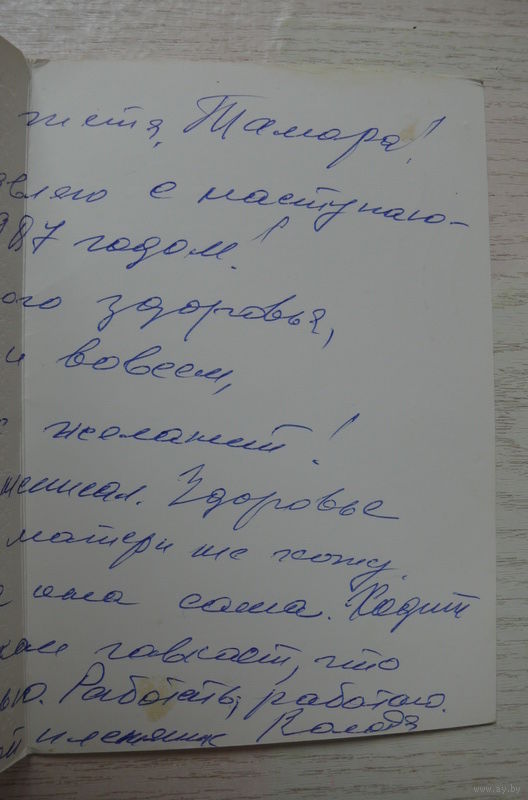 тетя, Тамара!
вляю с наступаю-
987 годом!
ого здоровья,
и вовсем,
желаний!
писал. Здоровье
матери не хожу.
она сама. Ходит
кам гавкает, что
ью. Работать, работаю.
ой племянник Володя
www.ay.by